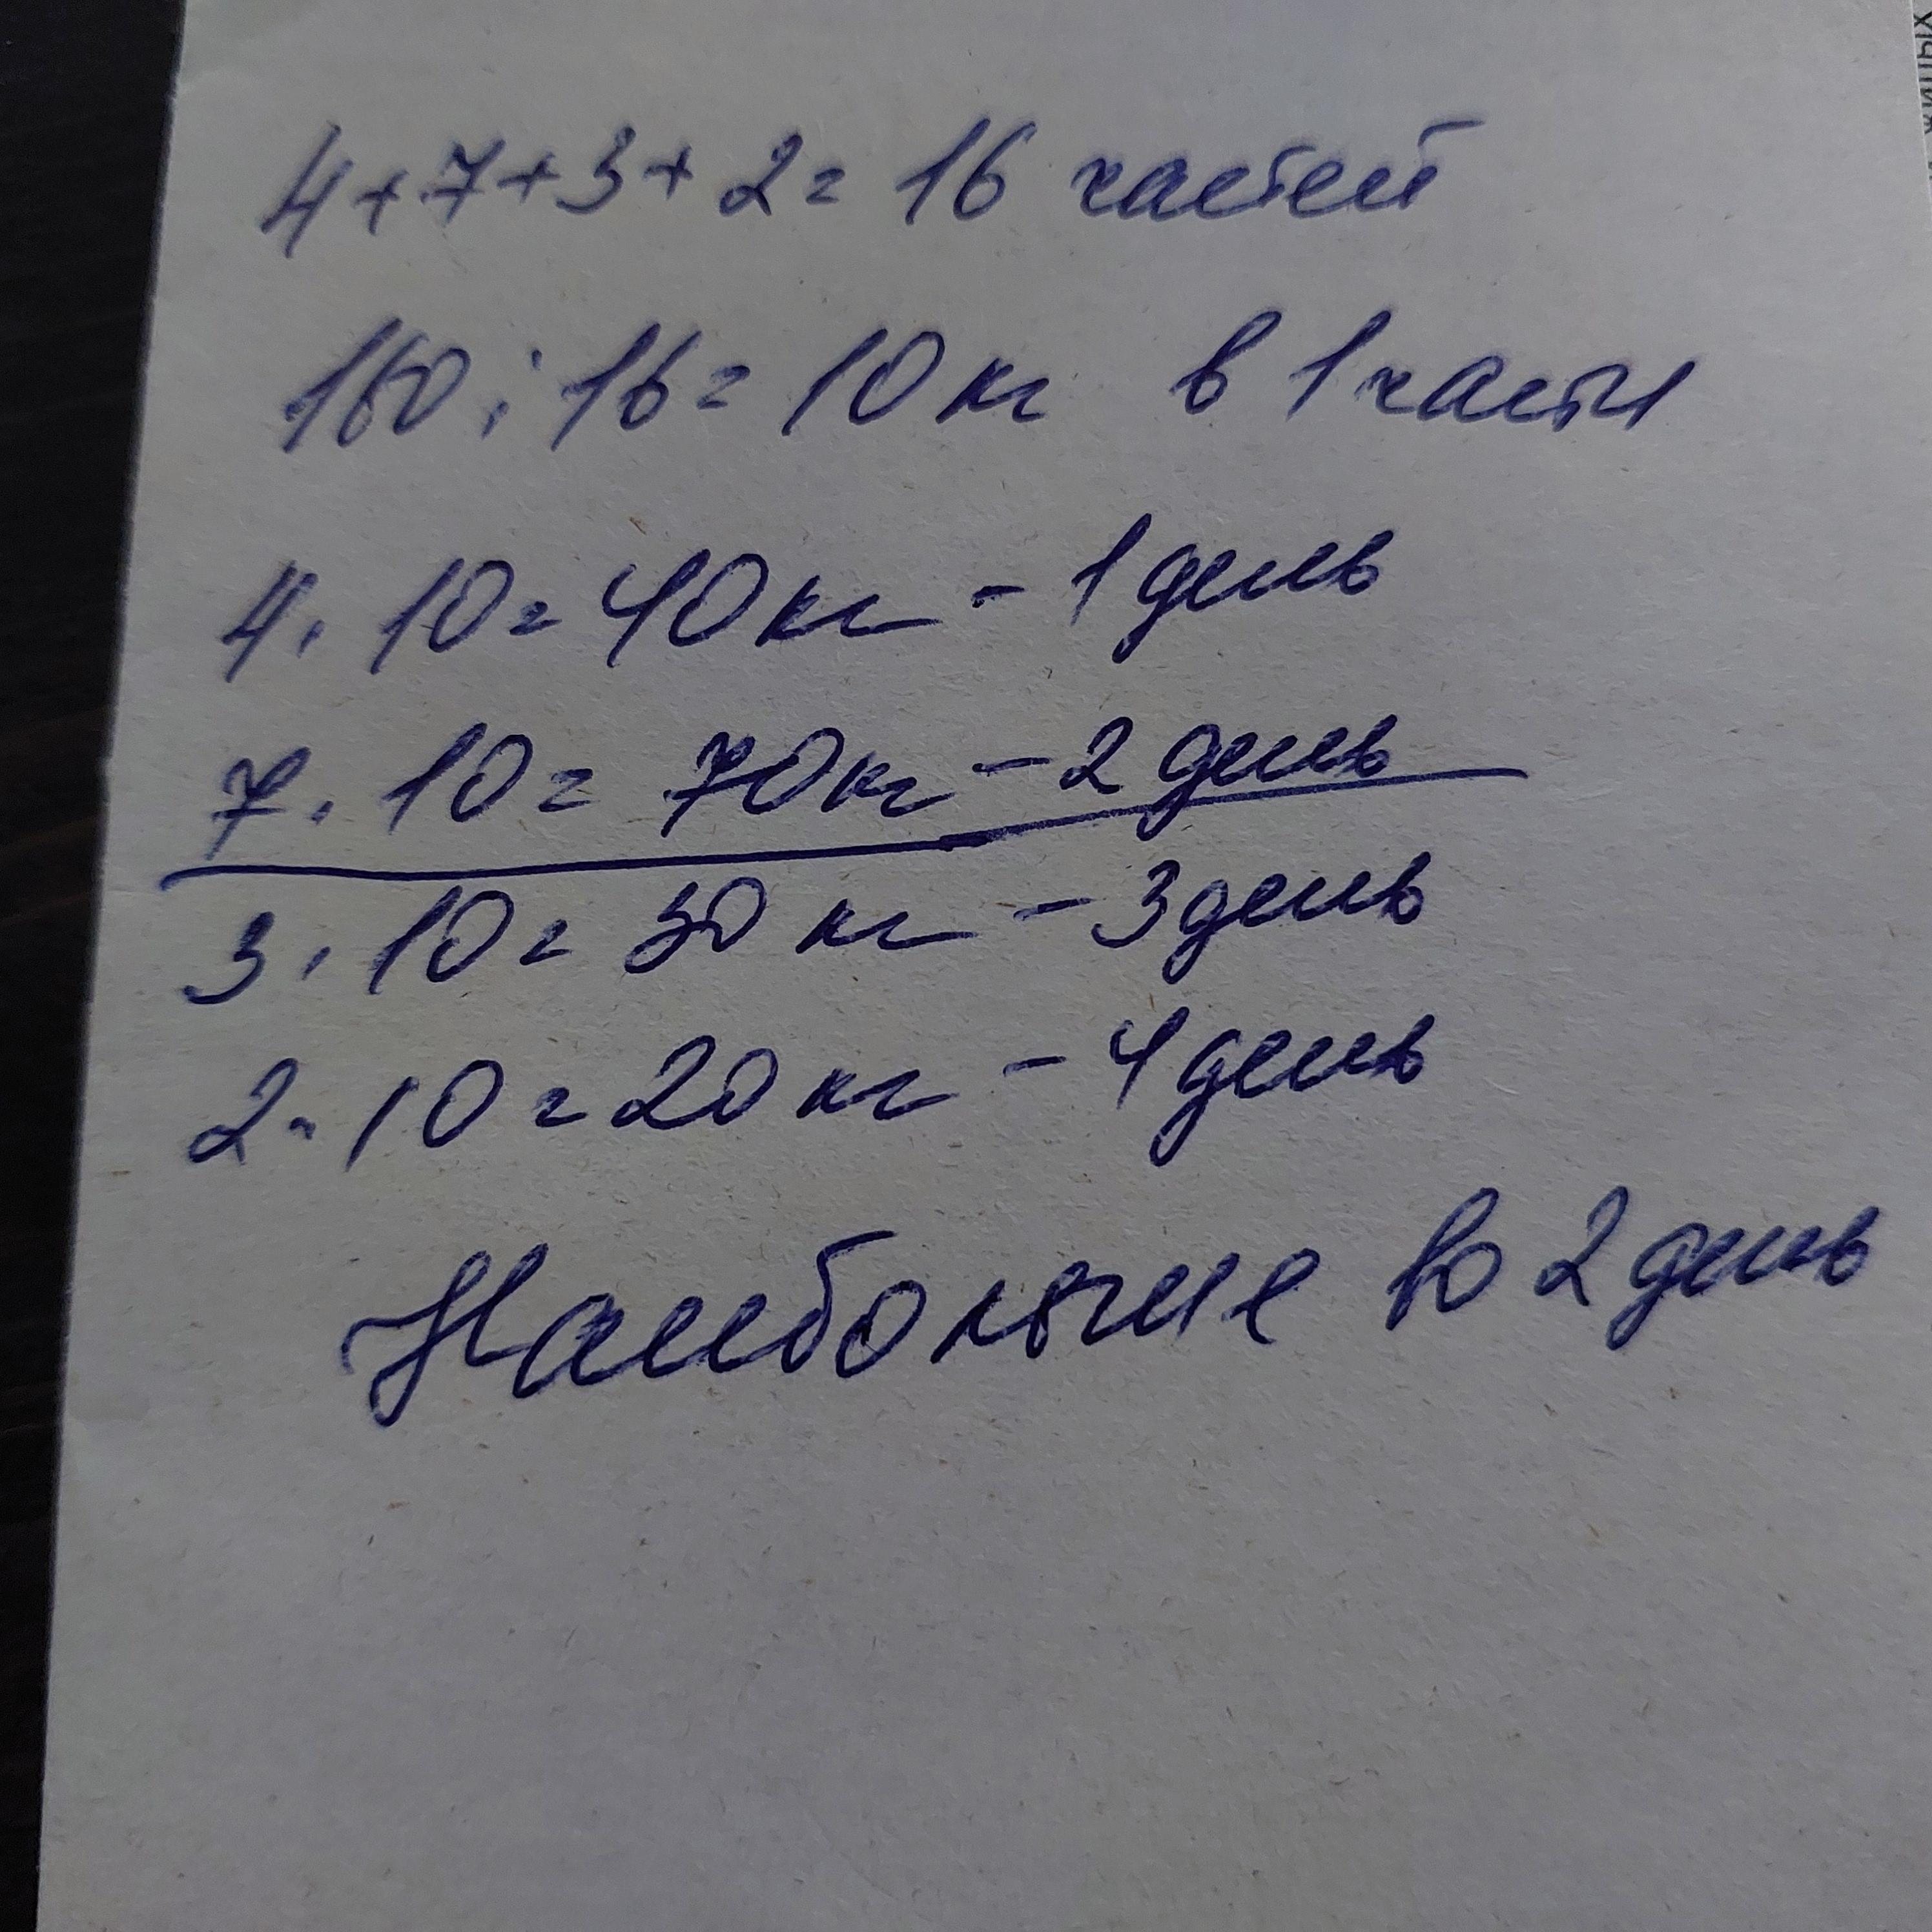 4+7+3+2= 16 частей
160:16= 10 кг в 1 части
4·10=40кг - 1 день
7·10= 70кг - 2 день
3·10= 30 кг - 3 день
2·10=20 кг - 4 день
Наибольшие во 2 день